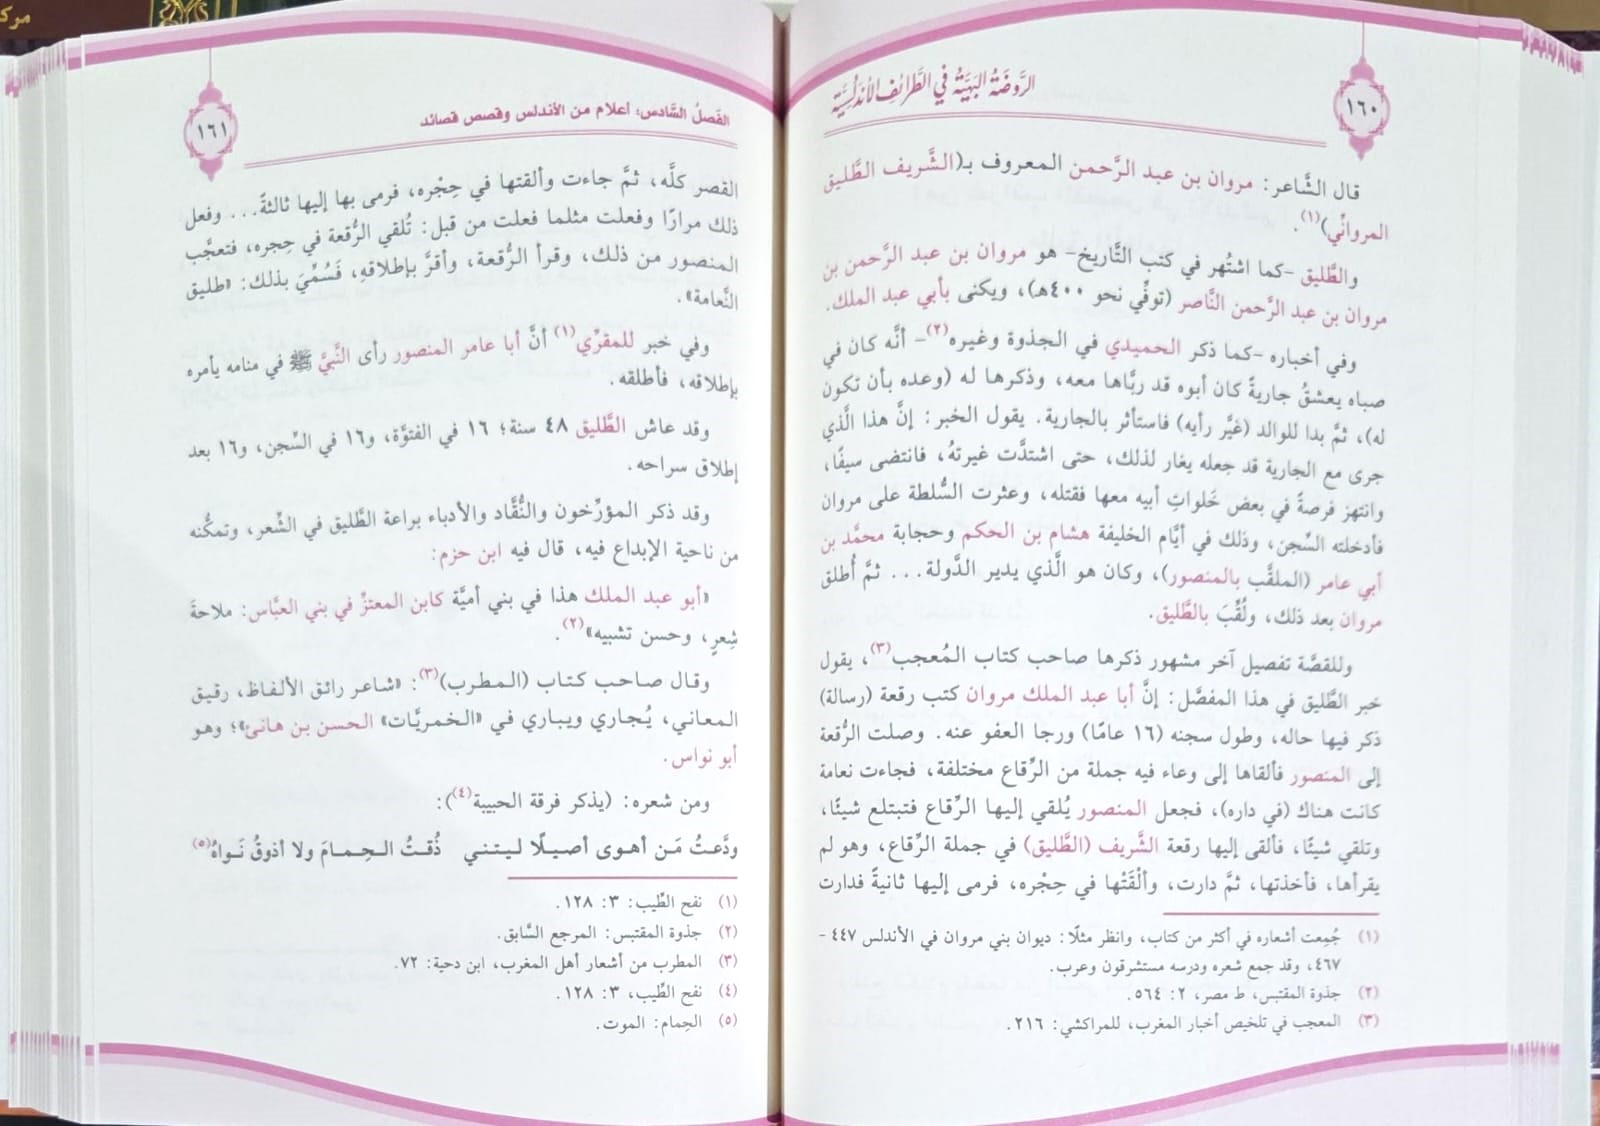 مركز
١٦٠
الرَّوضَةُ البَهِيَّةُ في الطَّرائِفِ الأندَلُسِيَّة
قال الشَّاعر: مروان بن عبد الرَّحمن المعروف بـ(الشَّريف الطَّليق
المروانِّي)(١).
والطَّليق -كما اشتُهر في كتب التَّاريخ- هو مروان بن عبد الرَّحمن بن
مروان بن عبد الرَّحمن النَّاصر (توفِّي نحو ٤٠٠هـ)، ويكنى بأبي عبد الملك.
وفي أخباره -كما ذكر الحميدي في الجذوة وغيره(٢)- أنَّه كان في
صباه يعشقُ جاريةً كان أبوه قد ربَّاها معه، وذكرها له (وعده بأن تكون
له)، ثمَّ بدا للوالد (غيَّر رأيه) فاستأثر بالجارية. يقول الخبر: إنَّ هذا الَّذي
جرى مع الجارية قد جعله يغار لذلك، حتى اشتدَّت غيرتهُ، فانتضى سيفًا،
وانتهز فرصةً في بعض خَلواتِ أبيه معها فقتله، وعثرت السُّلطة على مروان
فأدخلته السِّجن، وذلك في أيَّام الخليفة هشام بن الحكم وحجابة محمَّد بن
أبي عامر (الملقَّب بالمنصور)، وكان هو الَّذي يدير الدَّولة... ثمَّ أُطلق
مروان بعد ذلك، ولُقِّبَ بالطَّليق.
وللقصَّة تفصيل آخر مشهور ذكرها صاحب كتاب المُعجب(٣)، يقول
خبر الطَّليق في هذا المفصَّل: إنَّ أبا عبد الملك مروان كتب رقعة (رسالة)
ذكر فيها حاله، وطول سجنه (١٦ عامًا) ورجا العفو عنه. وصلت الرُّقعة
إلى المنصور فألقاها إلى وعاء فيه جملة من الرِّقاع مختلفة، فجاءت نعامة
كانت هناك (في داره)، فجعل المنصور يُلقي إليها الرِّقاع فتبتلع شيئًا،
وتلقي شيئًا، فألقى إليها رقعة الشَّريف (الطَّليق) في جملة الرِّقاع، وهو لم
يقرأها، فأخذتها، ثمَّ دارت، وألْقَتْها في حِجْره، فرمى إليها ثانيةً فدارت
(١) جُمِعت أشعاره في أكثر من كتاب، وانظر مثلًا: ديوان بني مروان في الأندلس ٤٤٧ -
٤٦٧، وقد جمع شعره ودرسه مستشرقون وعرب.
(٢) جذوة المقتبس، ط مصر، ٢: ٥٦٤.
(٣) المعجب في تلخيص أخبار المغرب، للمراكشي: ٢١٦.
الفَصلُ السَّادس: أعلام من الأندلس وقصص قصائد
١٦١
القصر كلَّه، ثمَّ جاءت وألقتها في حِجْره، فرمى بها إليها ثالثةً... وفعل
ذلك مرارًا وفعلت مثلما فعلت من قبل: تُلقي الرُّقعة في حِجره، فتعجَّب
المنصور من ذلك، وقرأ الرُّقعة، وأقرَّ بإطلاقهِ، فَسُمِّيَ بذلك: «طليق
النَّعامة».
وفي خبر للمقرِّي(١) أنَّ أبا عامر المنصور رأى النَّبيَّ ﷺ في منامه يأمره
بإطلاقه، فأطلقه.
وقد عاش الطَّليق ٤٨ سنة؛ ١٦ في الفتوَّة، و١٦ في السِّجن، و١٦ بعد
إطلاق سراحه.
وقد ذكر المؤرِّخون والنُّقَّاد والأدباء براعة الطَّليق في الشِّعر، وتمكُّنه
من ناحية الإبداع فيه، قال فيه ابن حزم:
«أبو عبد الملك هذا في بني أميَّة كابن المعتزِّ في بني العبَّاس: ملاحةَ
شِعرٍ، وحسن تشبيه»(٢).
وقال صاحب كتاب (المطرب)(٣): «شاعر رائق الألفاظ، رقيق
المعاني، يُجاري ويباري في «الخمريَّات» الحسن بن هانئ»؛ وهو
أبو نواس.
ومن شعره: (يذكر فرقة الحبيبة(٤)):
ودَّعتُ مَن أهوى أصيلًا ليتني ذُقتُ الحِمامَ ولا أذوقُ نَواهُ(٥)
(١) نفح الطِّيب: ٣: ١٢٨.
(٢) جذوة المقتبس: المرجع السَّابق.
(٣) المطرب من أشعار أهل المغرب، ابن دحية: ٧٢.
(٤) نفح الطِّيب، ٣: ١٢٨.
(٥) الحِمام: الموت.